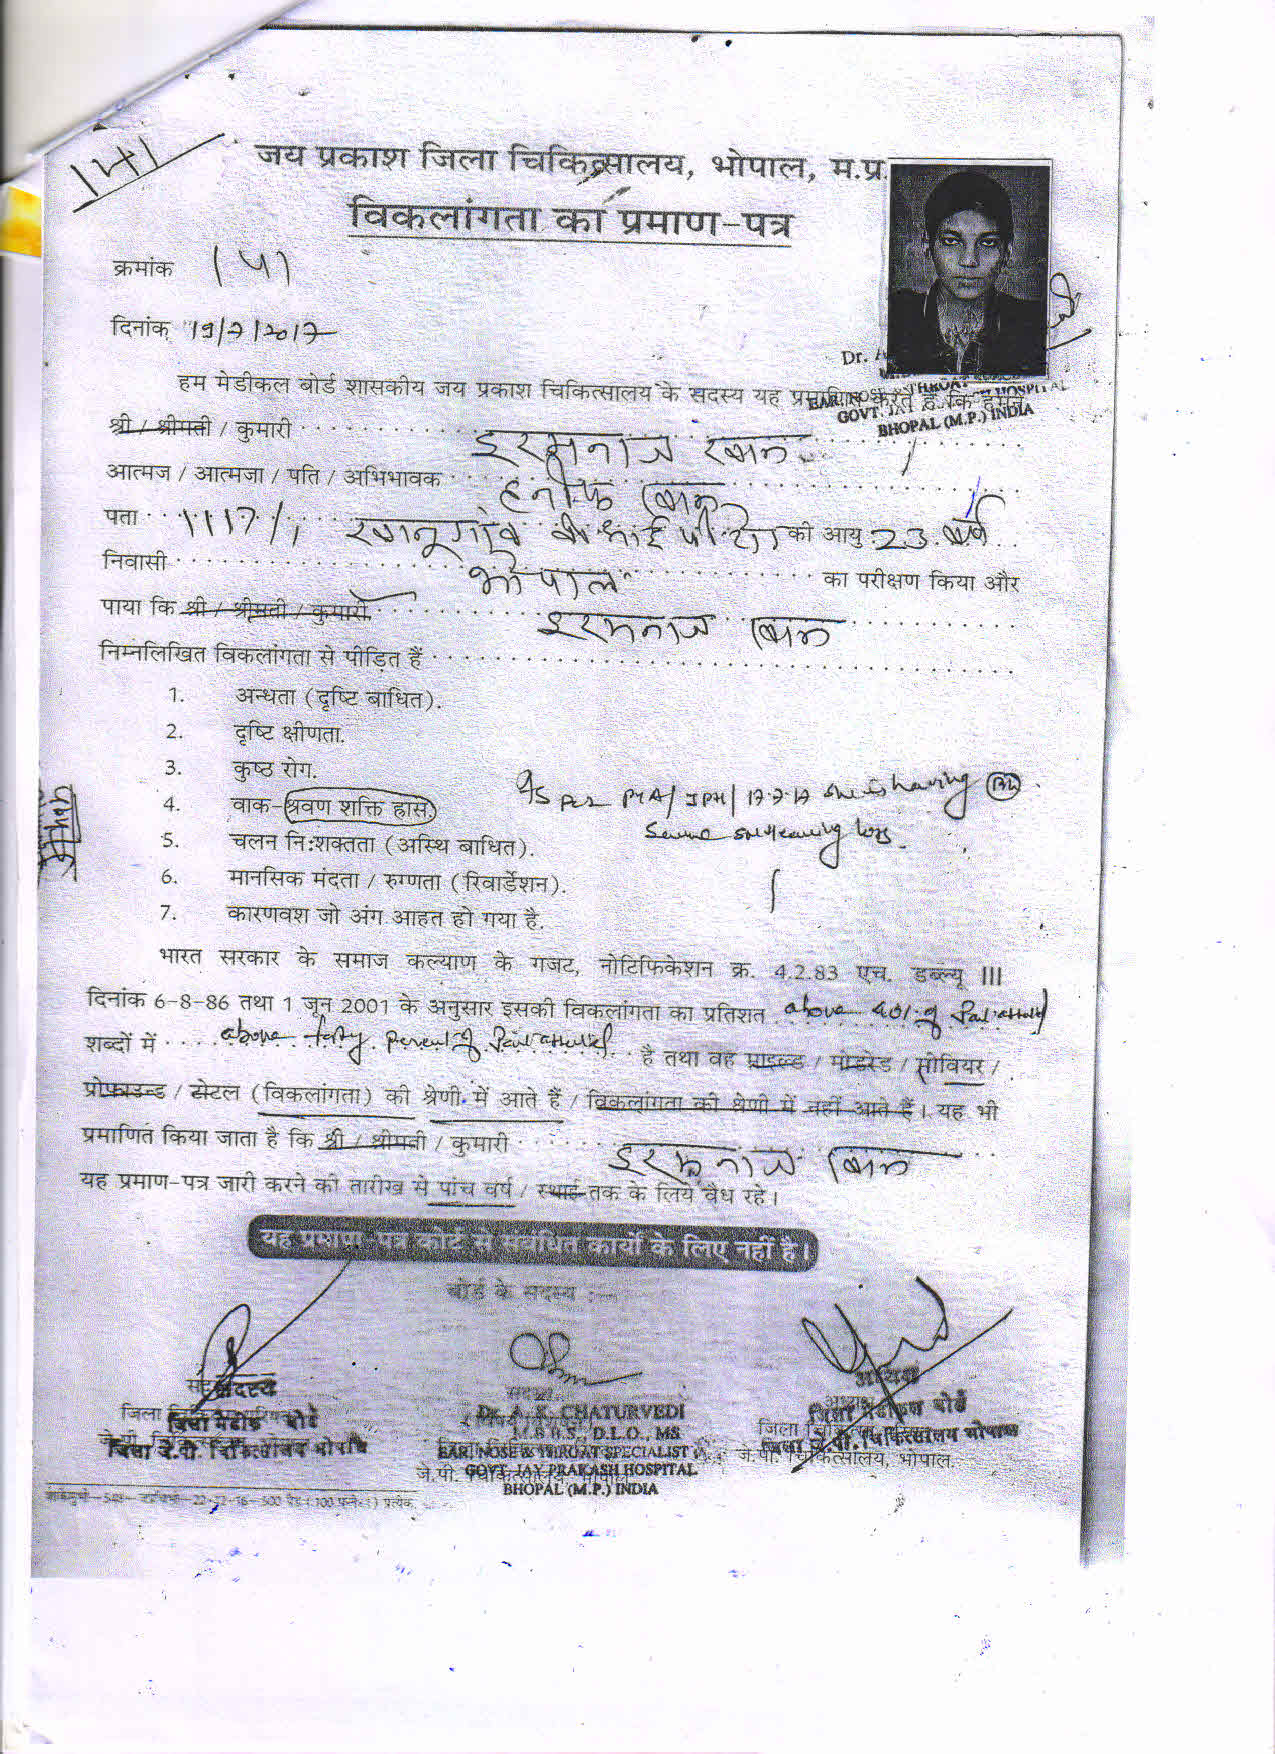 141
जय प्रकाश जिला चिकित्सालय, भोपाल, म.प्र.
विकलांगता का प्रमाण-पत्र
क्रमांक 141
दिनांक 19/7/2017
Dr.
हम मेडीकल बोर्ड शासकीय जय प्रकाश चिकित्सालय के सदस्य यह प्रमाणित करते हैं कि हमने
EAR, NOSE & THROAT
GOVT. JAY HOSPITAL
BHOPAL (M.P.) INDIA
श्री / श्रीमती / कुमारी इरमनाज खान
आत्मज / आत्मजा / पति / अभिभावक हनीफ खान
पता 1117/1 खानूगांव की आयु 23 वर्ष
निवासी भोपाल का परीक्षण किया और
पाया कि श्री / श्रीमती / कुमारी इरमनाज खान
निम्नलिखित विकलांगता से पीड़ित हैं
1. अन्धता (दृष्टि बाधित).
2. दृष्टि क्षीणता.
3. कुष्ठ रोग.
4. वाक-श्रवण शक्ति ह्रास.
As per PTA/JPH/17-7-17 she is having
Severe hearing loss.
5. चलन नि:शक्तता (अस्थि बाधित).
6. मानसिक मंदता / रुग्णता (रिवार्डेशन).
7. कारणवश जो अंग आहत हो गया है.
भारत सरकार के समाज कल्याण के गजट, नोटिफिकेशन क्र. 4.2.83 एच. डब्ल्यू III
दिनांक 6-8-86 तथा 1 जून 2001 के अनुसार इसकी विकलांगता का प्रतिशत above 40% of
शब्दों में above forty percent of है तथा वह माइल्ड / मोडरेड / सीवियर /
प्रोफाउन्ड / टोटल (विकलांगता) की श्रेणी में आते हैं / विकलांगता की श्रेणी में नहीं आते हैं। यह भी
प्रमाणित किया जाता है कि श्री / श्रीमती / कुमारी इरमनाज खान
यह प्रमाण-पत्र जारी करने की तारीख से पांच वर्ष / स्थाई तक के लिये वैध रहे।
यह प्रमाण पत्र कोर्ट से संबंधित कार्यो के लिए नहीं है।
बोर्ड के सदस्य :—
सदस्य
जिला मेडीकल बोर्ड
जिला जे.पी. चिकित्सालय भोपाल
Dr. A. K. CHATURVEDI
M.B.B.S., D.L.O., MS
EAR, NOSE & THROAT SPECIALIST
GOVT. JAY PRAKASH HOSPITAL
BHOPAL (M.P.) INDIA
जे.पी. चिकित्सालय, भोपाल
जिला मेडीकल बोर्ड
जिला जे.पी. चिकित्सालय भोपाल
जे.पी. चिकित्सालय, भोपाल.